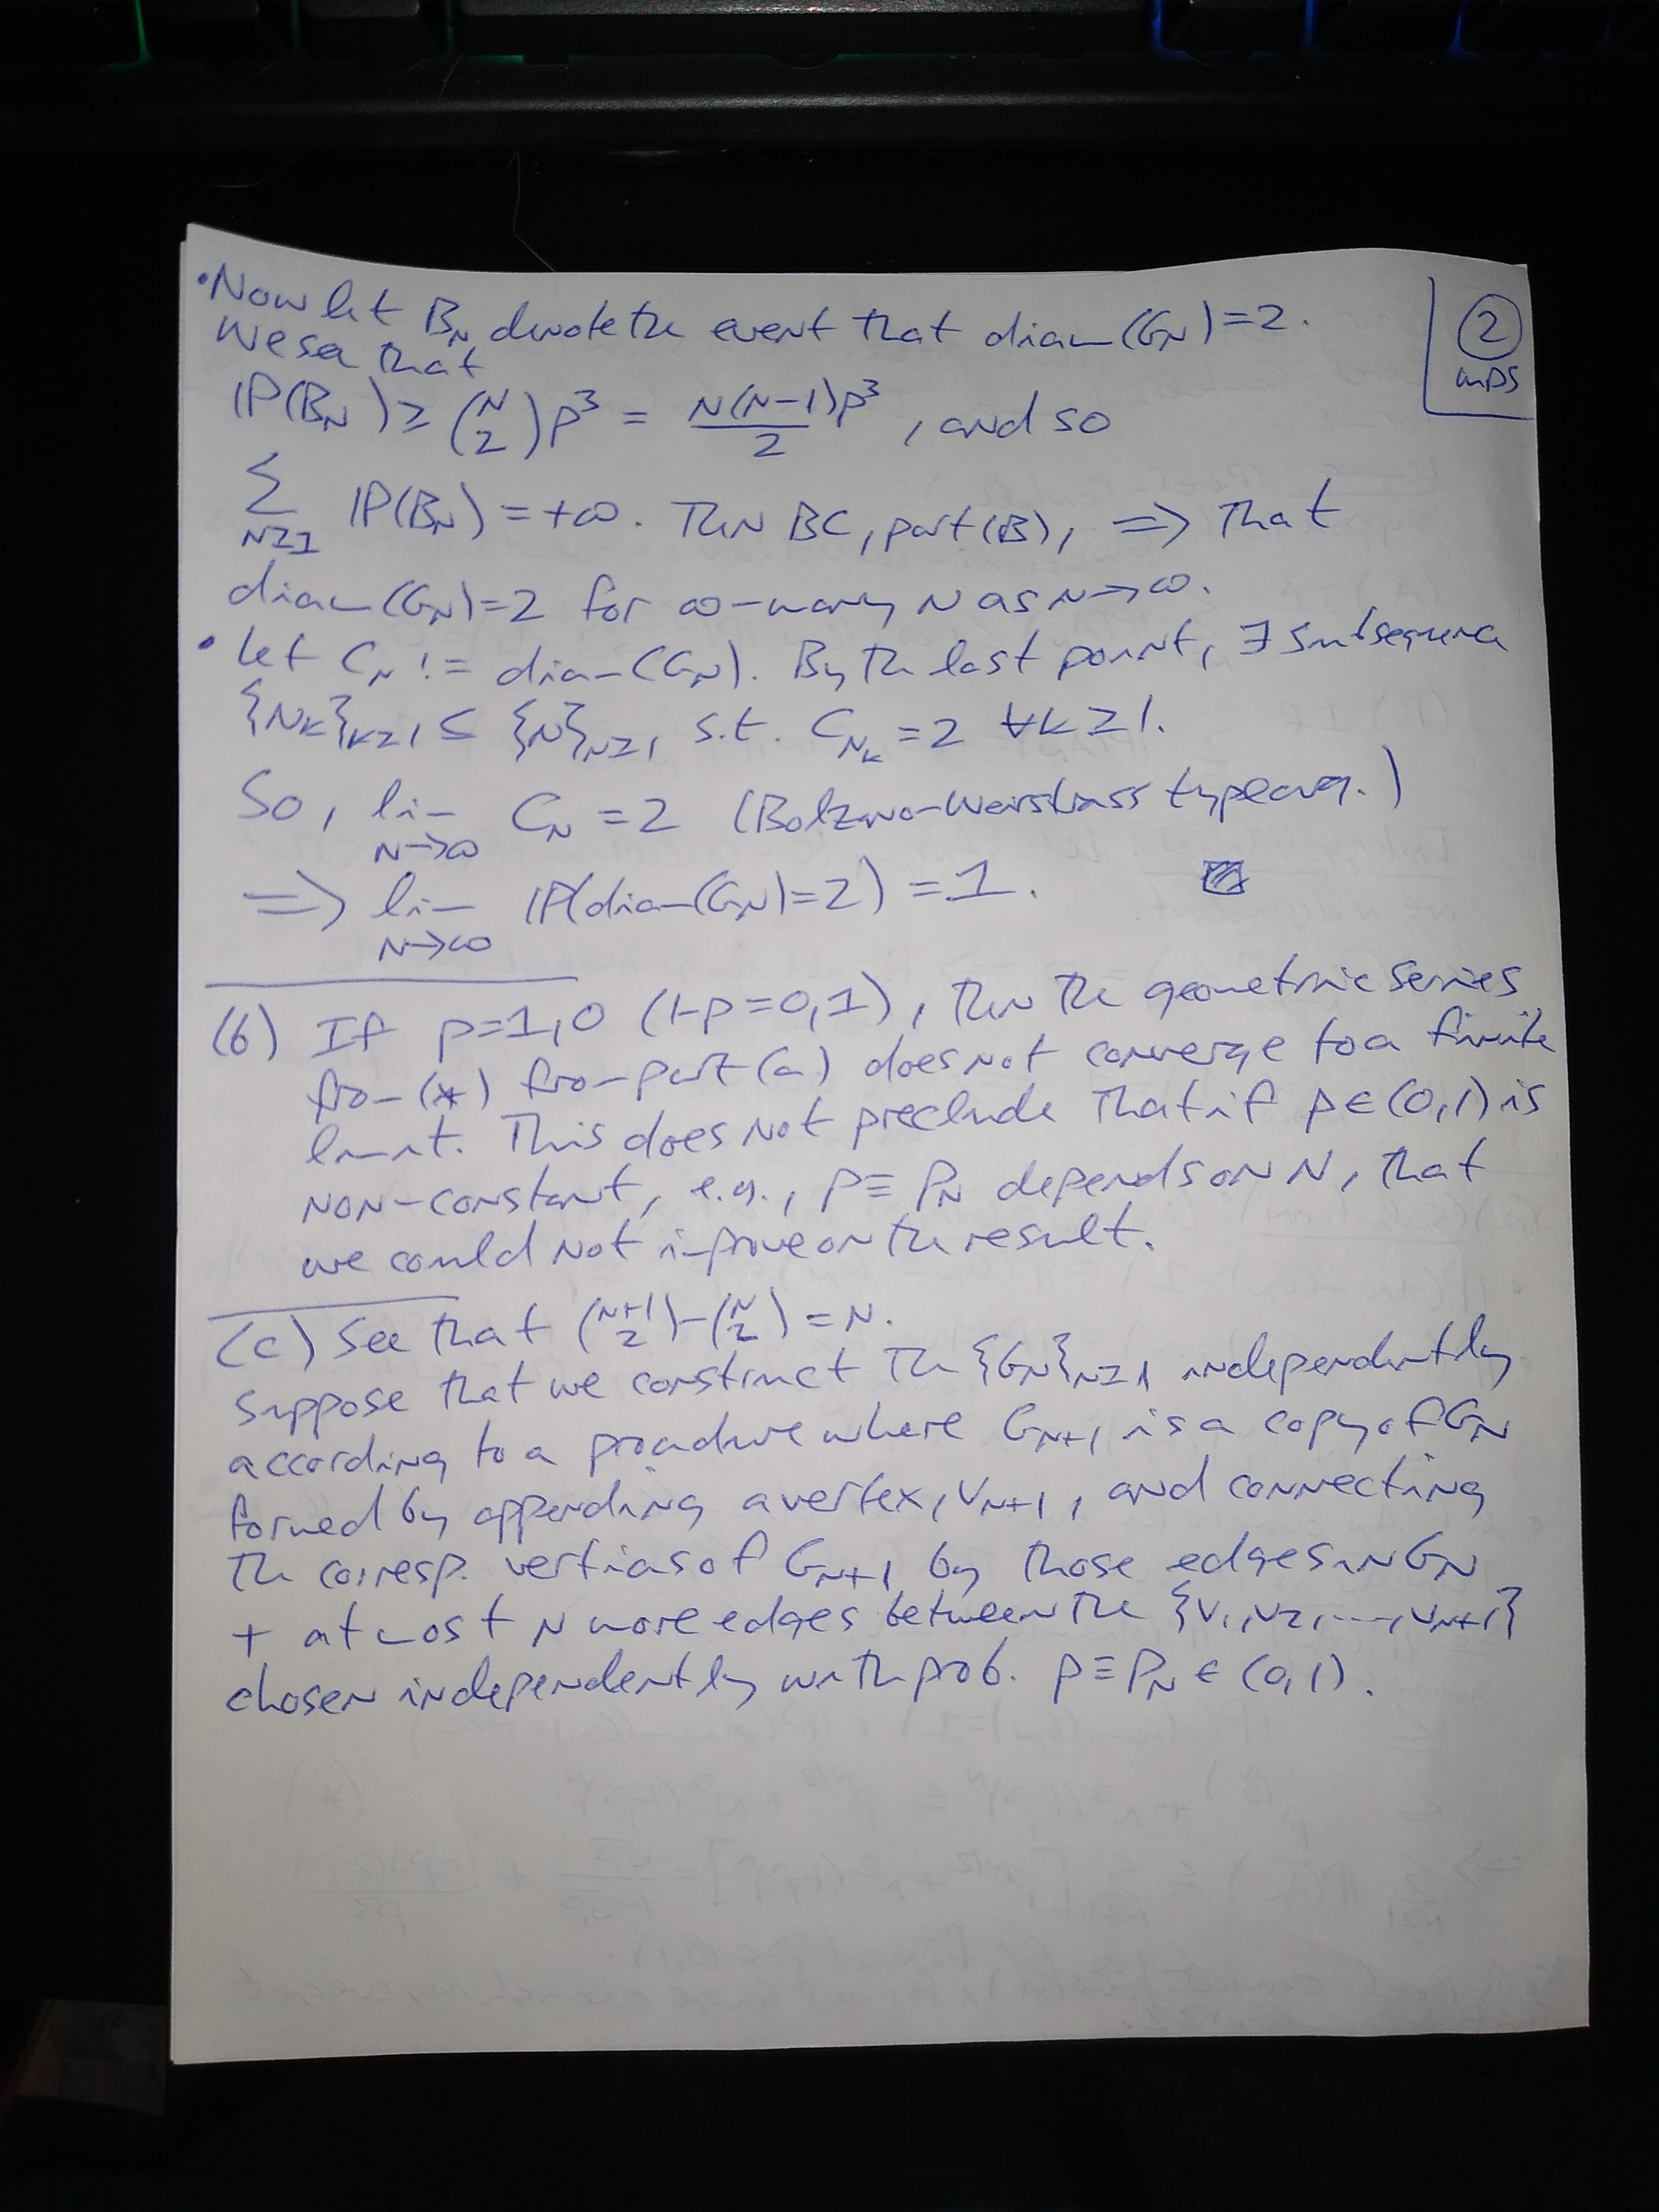 • Now let B_N denote the event that diam(G_N)=2.
We see that
② MDS
IP(B_N) ≥ (N 2)p^3 = N(N-1)p^3 / 2, and so
∑_{N≥1} IP(B_N) = +∞. Then BC, part (B), ⇒ that
diam(G_N)=2 for ∞-many N as N→∞.
• Let C_N := diam(G_N). By the last point, ∃ subsequence
{N_k}_{k≥1} ⊆ {N}_{N≥1} s.t. C_{N_k} = 2 ∀k≥1.
So, lim_{N→∞} C_N = 2 (Bolzano-Weirstrass type arg.)
⇒ lim_{N→∞} IP(diam(G_N)=2) = 1.
(b) If p=1,0 (1-p=0,1), then the geometric series
from (*) from part (a) does not converge to a finite
limit. This does not preclude that if p∈(0,1) is
non-constant, e.g., p≡p_N depends on N, that
we could not improve on the result.
(c) See that (N+1 2)-(N 2) = N.
Suppose that we construct the {G_N}_{N≥1} independently
according to a procedure where G_{N+1} is a copy of G_N
formed by appending a vertex, v_{N+1}, and connecting
the corresp. vertices of G_{N+1} by those edges in G_N
+ at most N more edges between the {v_1,v_2,...,v_{N+1}}
chosen independently with prob. p≡p_N ∈ (0,1).